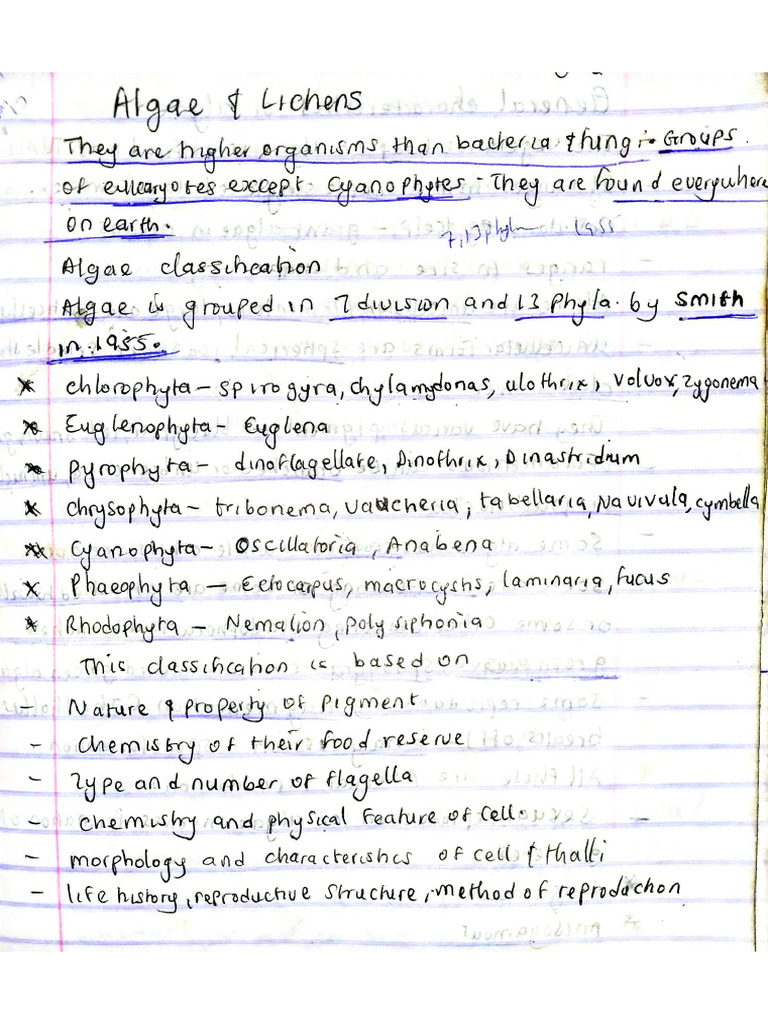 Algae & Lichens
They are higher organisms than bacteria & fungi - Groups.
of eukaryotes except Cyanophytes - They are found everywhere
on earth.
7,13 phyla 1955
Algae classification
Algae is grouped in 7 division and 13 phyla. by Smith
in 1955.
* chlorophyta - spirogyra, chylamydonas, ulothrix, volvox, zygonema
* Euglenophyta - Euglena
* pyrophyta - dinoflagellate, Dinothrix, Dinastridum
* chrysophyta - tribonema, vaucheria, tabellaria, Navivula, cymbella
* Cyanophyta - Oscillatoria, Anabena
* Phaeophyta - Ectocarpus, macrocystis, laminaria, fucus
* Rhodophyta - Nemalion, polysiphonia
This classification is based on
- Nature & property of pigment
- Chemistry of their food reserve
- Type and number of flagella
- Chemistry and physical feature of cell. -
- morphology and characteristics of cell & thalli
- life history, reproductive structure, method of reproduction